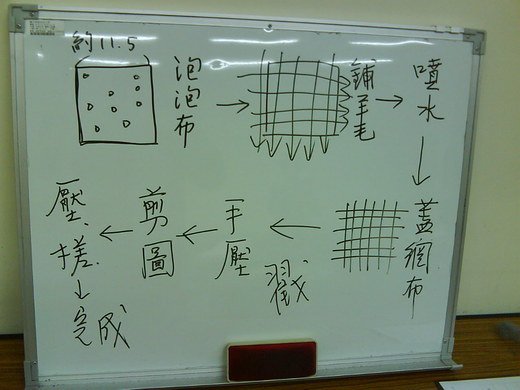 約11.5
泡泡布
鋪羊毛
噴水
蓋網布
戳
手壓
剪圖
壓、搓
完成